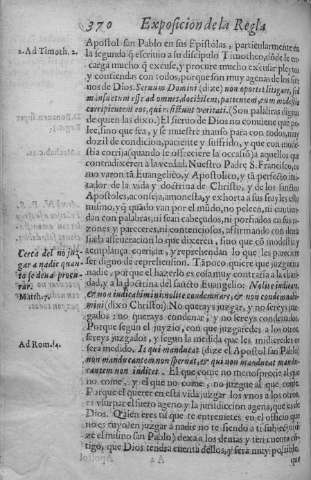 370 Exposicion de la Regla
2. Ad Timoth. 2.
Apostol san Pablo en sus Epistolas, particularmente en
la segunda q̃ escrivio a su discipulo Timotheo,
carga mucho q̃ escuse, y procure mucho escusar pleytos
y contiendas con todos, porque son muy agenas de los sier
nos de Dios. Seruum Domini (dize) non oportet litigare, sed
mansuetum esse ad omnes, docibilem, patientem, cum modestia
corripientem eos, qui resistunt veritati. (Son palabras dignas
de quien las dixo.) El sieruo de Dios no conuiene que po-
lee, sino que sea, y se muestre manso para con todos, muy
dozil de condicion, paciente y sufrido, y que con mode-
stia corrija (quando se offreciere la occasiõ) a aquellos que
contradixeren a la verdad. Nuestro Padre S. Francisco, co
mo varon tã Euangelico, y Apostolico, y tã perfecto imi-
tador de la vida y doctrina de Christo, y de los sanctos
Apostoles, aconseja, amonesta, y exhorta a sus frayles esto
mismo, q̃ quãdo van por el mũdo, no peleen, ni contien-
dan con palabras, ni sean cabeçudos, ni porfiados en sus ra-
zones y pareceres, ni contenciosos, affirmando con dema
siada asseueracion lo que dixeren, sino que cõ modestia y
templança corrijan, y reprehendan lo que les parecen
ser digno de reprehension. Tãpoco quiere que juzguen a
nadie, porque el hazerlo es cosa muy contraria a la chari-
dad, y a la doctrina del sancto Euangelio: Nolite iudicare,
Cerca del no juz-
gar a nadie quan
to se deua procu-
rar.
Matth. 7.
& non iudicabimini: nolite condemnare, & non condemna-
mini (dixo Christo) No querays juzgar, y no sereys juz-
gados: no querays condenar, y no sereys condenados.
Porque segun el juyzio, con que juzgaredes a los otros,
sereys juzgados, y segun la medida que les midieredes os
Ad Rom. 14.
sera medido. Is qui manducat (dize el Apostol san Pablo)
non manducantem non spernat, & qui non manducat mandu-
cantem non iudicet. El que come no menosprecie al que
no come, y el que no come, no juzgue al que come.
Porque el querer en esta vida juzgar los vnos a los otros,
es vsurpar el fuero ageno y la jurisdiccion agena, que es de
Dios. Quien eres tu que te entremetes en el officio que
no es tuyo en juzgar a nadie no te siendo a ti subjecto (di
ze el mismo san Pablo) dexa a los demas y ten cuenta cõ-
tigo, que Dios tendra cuenta dellos, y sera muy possible,
que